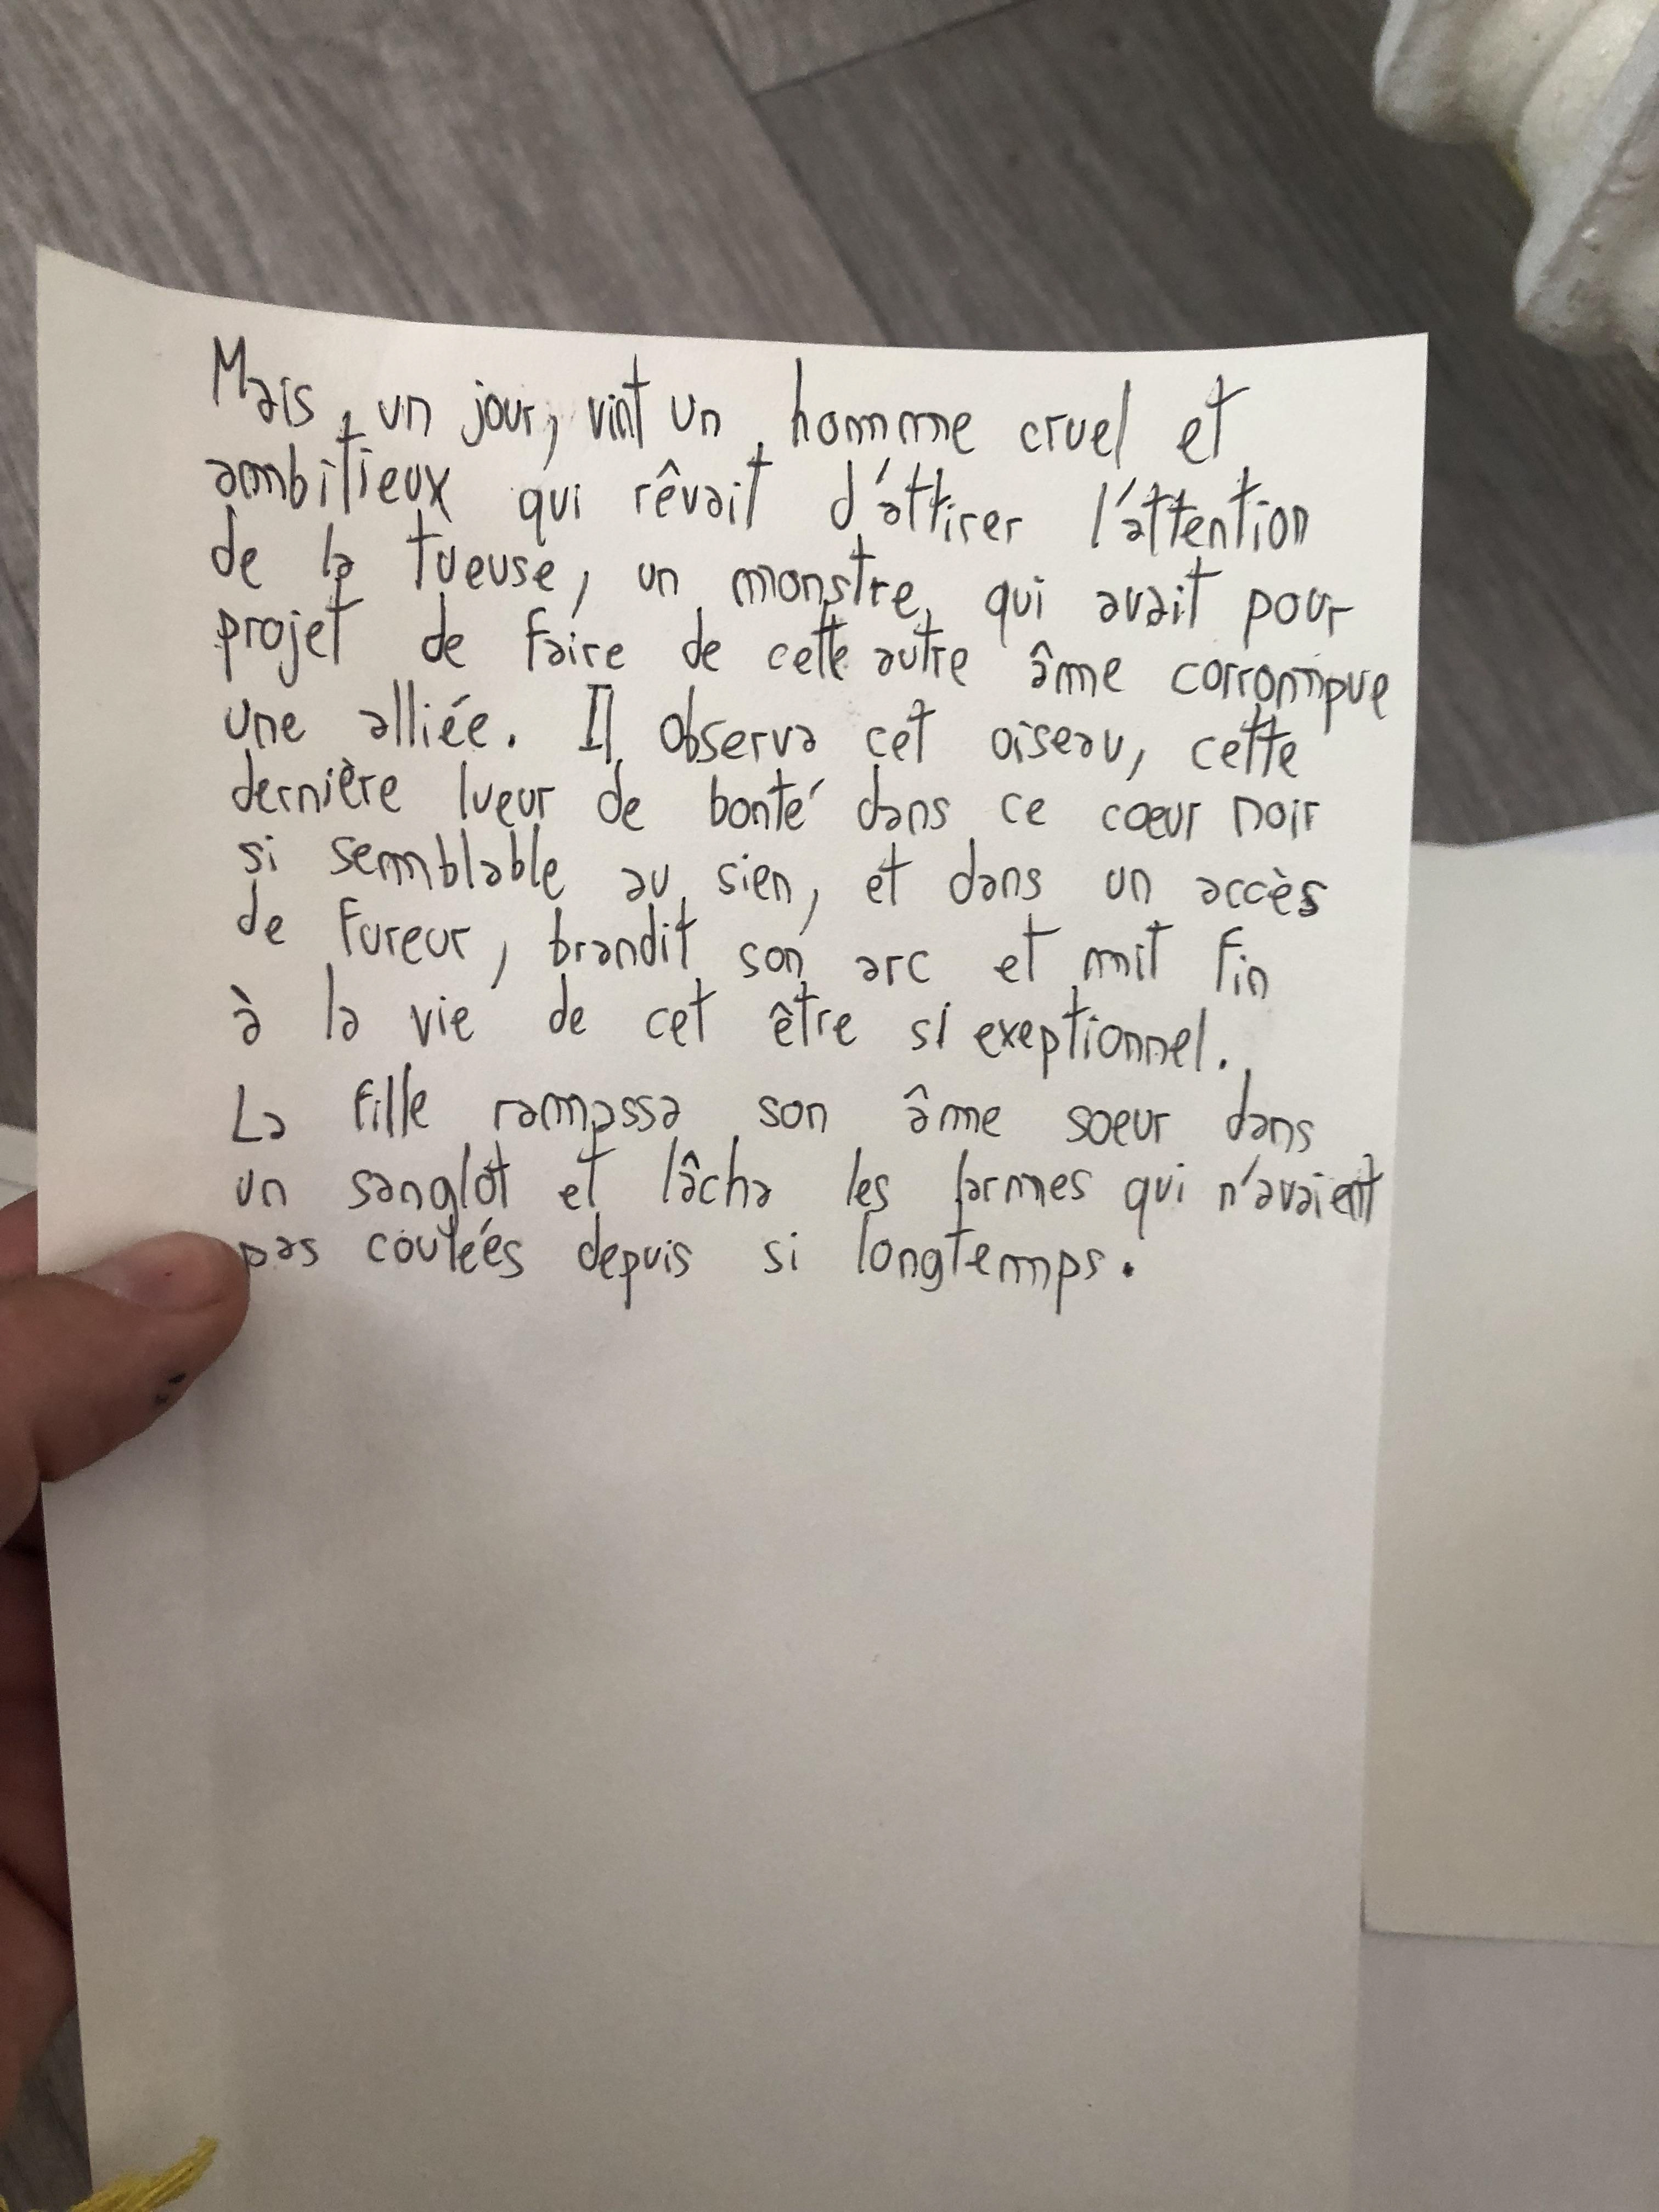 Mais, un jour, vint un homme cruel et
ambitieux qui rêvait d'attirer l'attention
de la tueuse, un monstre qui avait pour
projet de faire de cette autre âme corrompue
une alliée. Il observa cet oiseau, cette
dernière lueur de bonté dans ce cœur noir
si semblable au sien, et dans un accès
de fureur, brandit son arc et mit fin
à la vie de cet être si exeptionnel.
La fille ramassa son âme soeur dans
un sanglot et lâcha les larmes qui n'avaient
pas coulées depuis si longtemps.